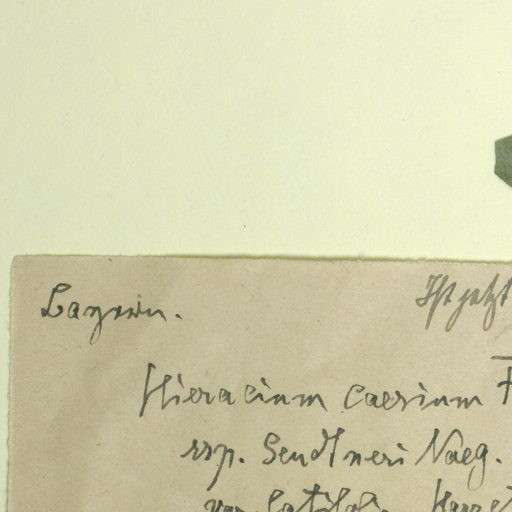 Bayern.
Ist jetzt
Hieracium caesium F
ssp. Sendtneri Naeg.
var.